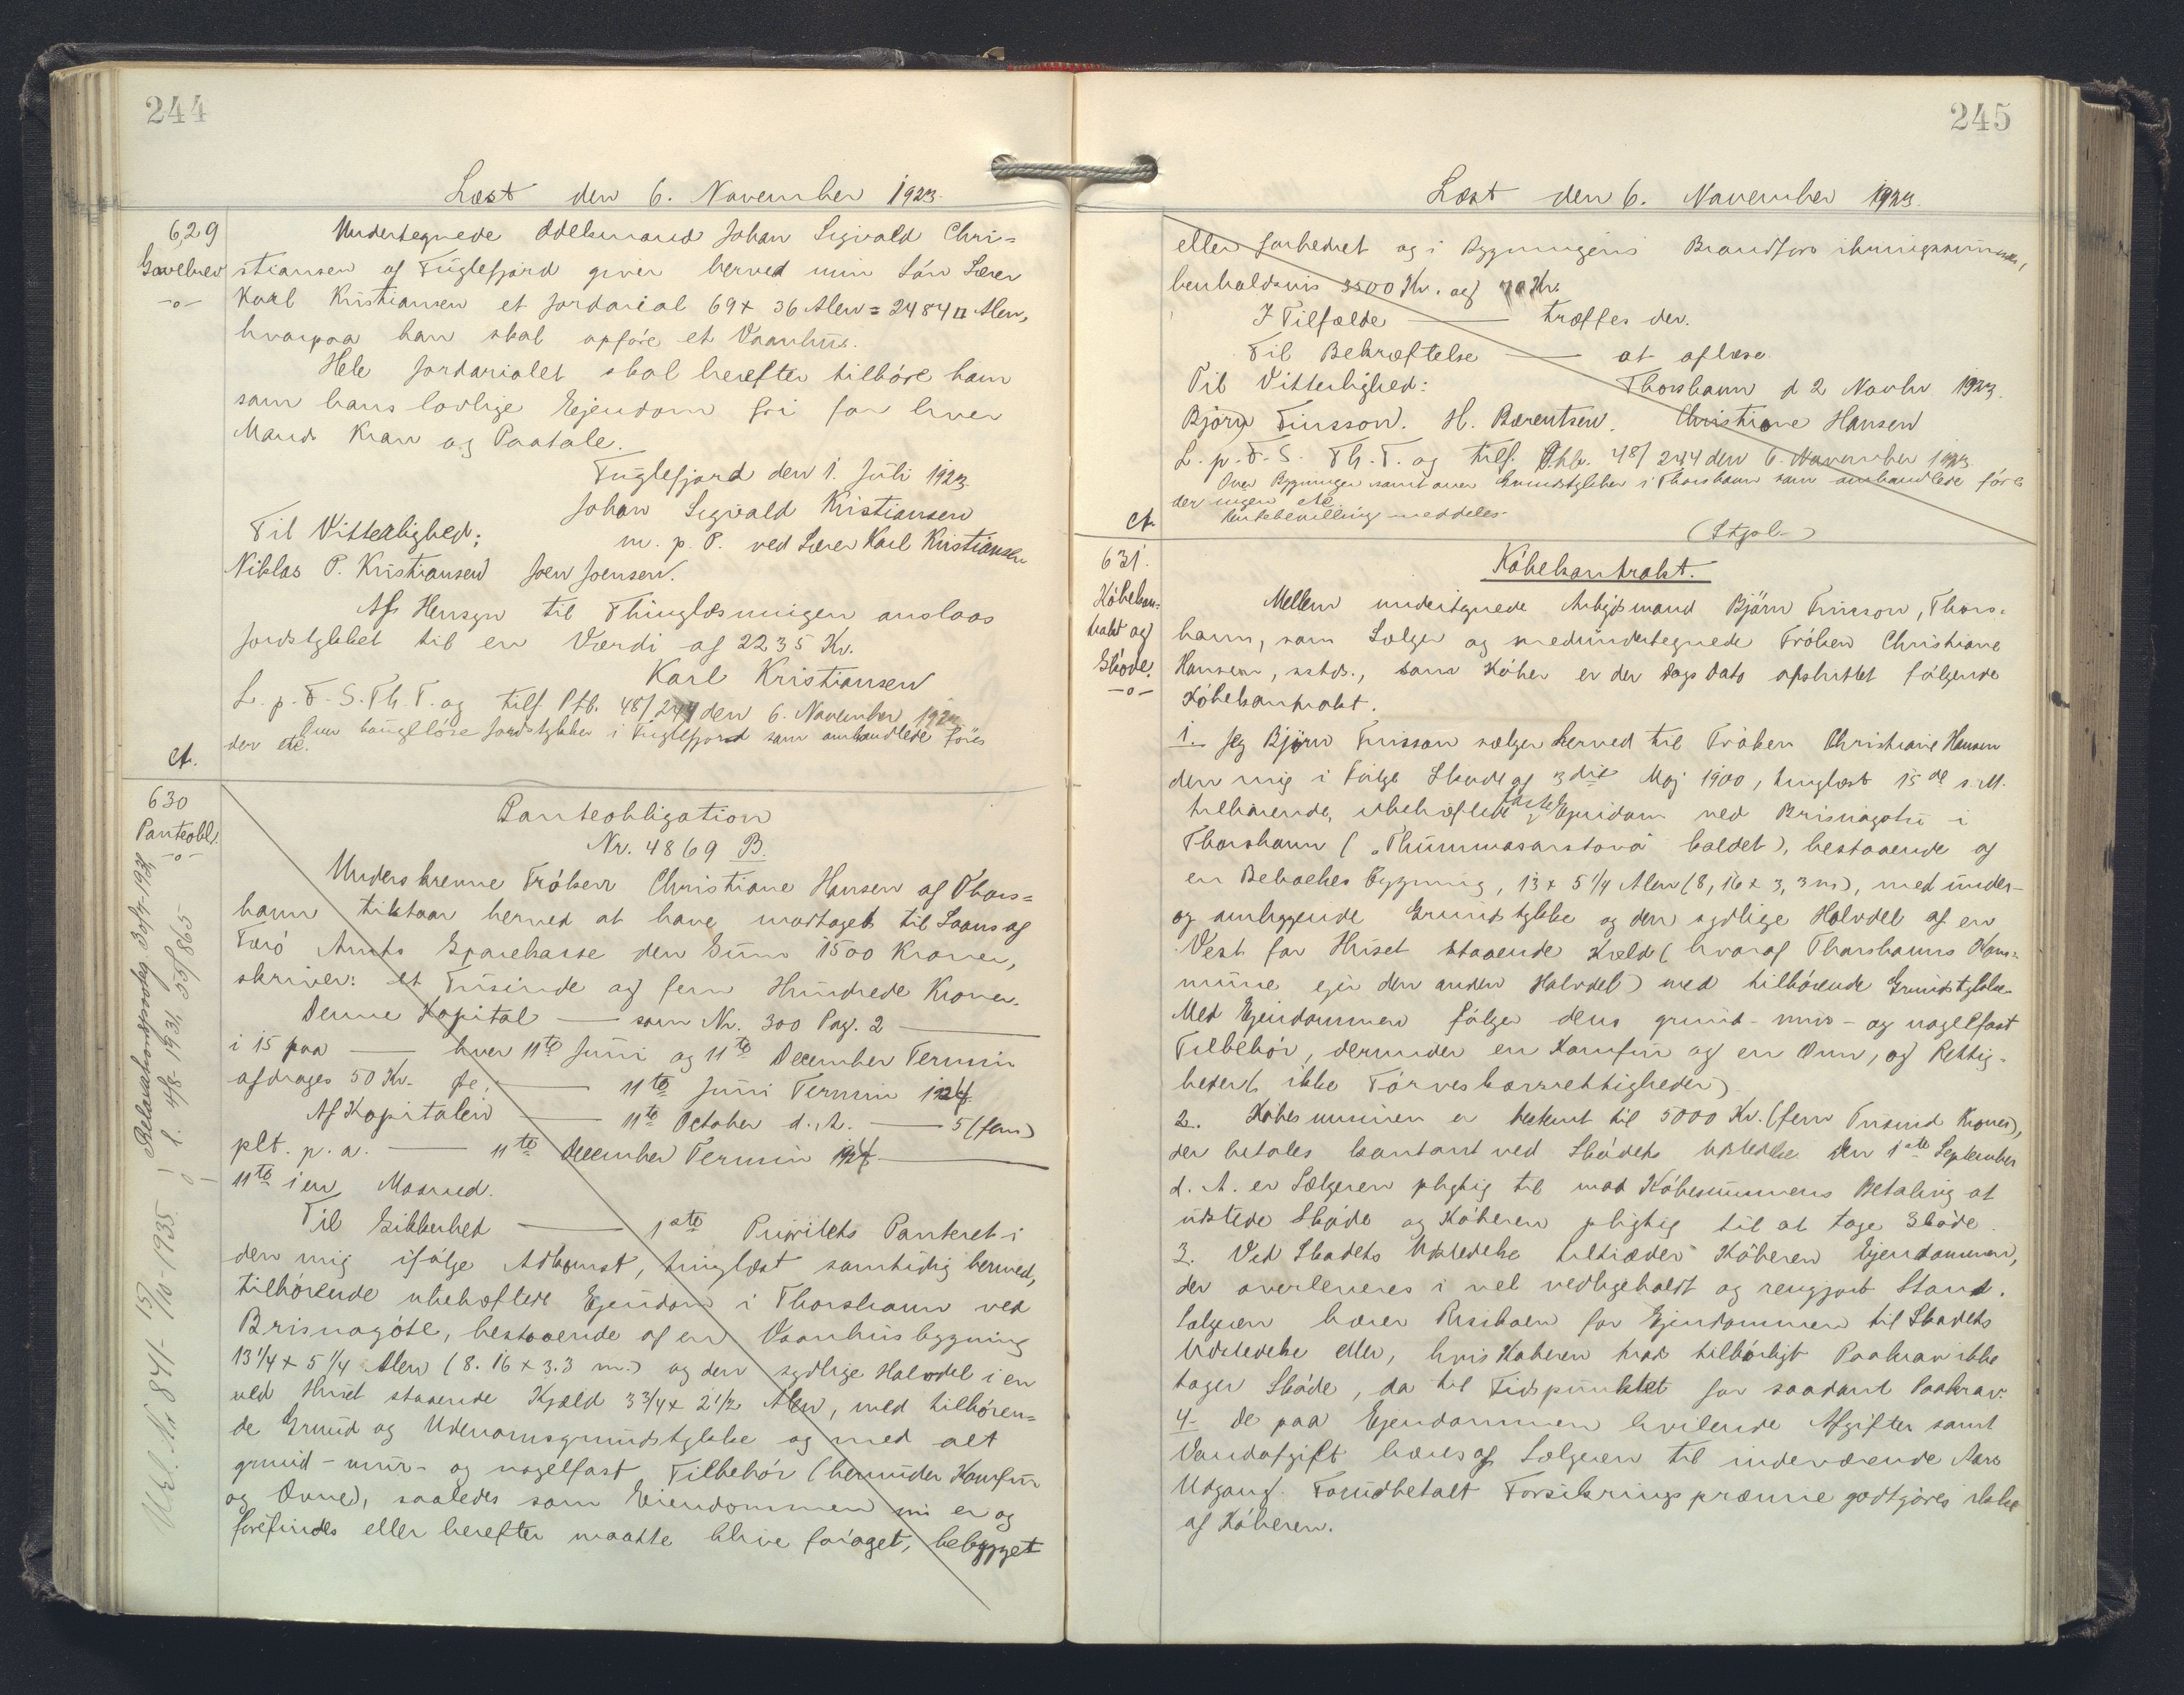 244
Læst den 6. November 1923.
629
Gavebrev
-o-
Undertegnede Odelsmand Johan Sigvald Chri=
stiansen af Fuglefjord giver herved min Sön Lærer
Karl Kristiansen et Jordareal 69 x 36 Alen = 2484 □ Alen,
hvorpaa han skal opföre et Vaanhus.
Hele Jordarialet skal herefter tilhöre ham
som hans lovlige Ejendom fri for hver
Mands Krav og Paatale.
Fuglefjord den 1. Juli 1923.
Johan Sigvald Kristiansen
Til Vitterlighed; m. p. P. ved Lærer Karl Kristiansen
Niklas P. Kristiansen Joen Joensen.
Af Hensyn til Thinglæsningen ansloas
Jordstykket til en Værdi af 2235 Kr.
Karl Kristiansen
L. p. F. S. Th. T. og tilf. Ptb. 48/244 den 6. November 1923
Over haugelöse Jordstykker i Fuglefjord som omhandlede föres
der etc.
Ct.
630
Panteobl.
-o-
Panteobligation
Nr. 4869 B.
Underskrevne Fröken Christiane Hansen af Thors=
havn tilstaar herved at have modtaget til Laans af
Færö Amts Sparekasse den Sum 1500 Kroner,
skriver: et Tusinde og fem Hundrede Kroner.
Denne Kapital — som Nr. 300 Pag. 2 —
i 15 paa — hver 11te Juni og 11te December Termin
afdrages 50 Kr. — 11te Juni Termin 1924
Af Kapitalen — 11te October d. A. — 5 (fem)
plt. p. a. — 11te December Termin 1924 —
11te i en Maaned.
Til Sikkerhed — 1ste Prioritets Panteret i
den mig ifölge Adkomst, tinglæst samtidig herved,
tilhörende ubehæftede Ejendom i Thorshavn ved
Brisnagöte, bestaaende af en Vaanhusbygning
13 1/4 x 5 1/4 Alen (8.16 x 3.3 m.) og den sydlige Halvdel i en
ved Huset staaende Kjæld 3 3/4 x 2 1/2 Alen, med tilhören=
de Grund og Udenomsgrundstykke og med alt
grund- mur- og nagelfast Tilbehör (herunder Komfur
og Ovne), saaledes som Eiendommen nu er og
forefindes eller herefter maatte blive foröget, bebygget
Relaxationspaateg
l. 4/8-1931, 55/865
Nr. 841- 15/10-1935
245
Læst den 6. November 1923.
eller forbedret og i Bygningens Brandforsikringssummer,
henholdsvis 3500 Kr. og 70 Kr.
I Tilfælde — træffes der.
Til Bekræftelse — at aflæse.
Til Vitterlighed: Thorshavn d 2 Novbr 1923.
Björn Finsson. H. Bærentsen. Christiane Hansen
L. p. F. S. Th. T. og tilf. Phb. 48/244 den 6. November 1923.
Over Bygninger samt over Grundstykker i Thorshavn som omhandlede föres
der ingen etc.
meddeles.
Ct.
631.
Köbekon-
trakt og
Sköde.
-o-
Köbekontrakt.
Mellem undertegnede Arbejdsmand Björn Finsson, Thors-
havn, som Sælger og medundertegnede Fröken Christiane
Hansen, sstds., som Köber er der Dags Dato afsluttet fölgende
Köbekontrakt.
1. Jeg Björn Finsson sælger herved til Fröken Christiane Hansen
den mig i Fölge Sköde af 3die Maj 1900, tinglæst 15de s. M.
tilhörende, ubehæftede faste Ejendom ved Brisnagötu i
Thorshavn („Thummasarstova" kaldet), bestaaende af
en Beboelses Bygning, 13 x 5 1/4 Alen (8,16 x 3,3 m), med under-
og omliggende Grundstykke og den sydlige Halvdel af en
Vest for Huset staaende Kæld (hvoraf Thorshavns Kom=
mune ejer den anden Halvdel) med tilhörende Grundstykke.
Med Ejendommen fölger dens grund- mur- og nagelfast
Tilbehör, derunder en Komfur og en Ovn, og Rettig-
heder (ikke Törveskærrettigheder)
2. Köbesummen er bestemt til 5000 Kr. (fem Tusind Kroner),
der betales kontant ved Sködets Udstedelse. Den 1ste September
d. A. er Sælgeren pligtig til mod Köbesummens Betaling at
udstede Sköde og Köberen pligtig til at tage Sköde.
3. Ved Skødets Udstedelse tiltræder Köberen Ejendommen,
der overleveres i vel vedligeholdt og rengjort Stand.
Sælgeren bærer Risikoen for Ejendommen til Skødets
Udstedelse eller, hvis Køberen trods tilbörligt Paakrav ikke
tager Sköde, da til Tidspunktet for saadant Paakrav.
4. De paa Ejendommen hvilende Afgifter samt
Vandafgift bæres af Sælgeren til indeværende Aars
Udgang. Forudbetalt Forsikringspræmie godtgöres ikke
af Köberen.